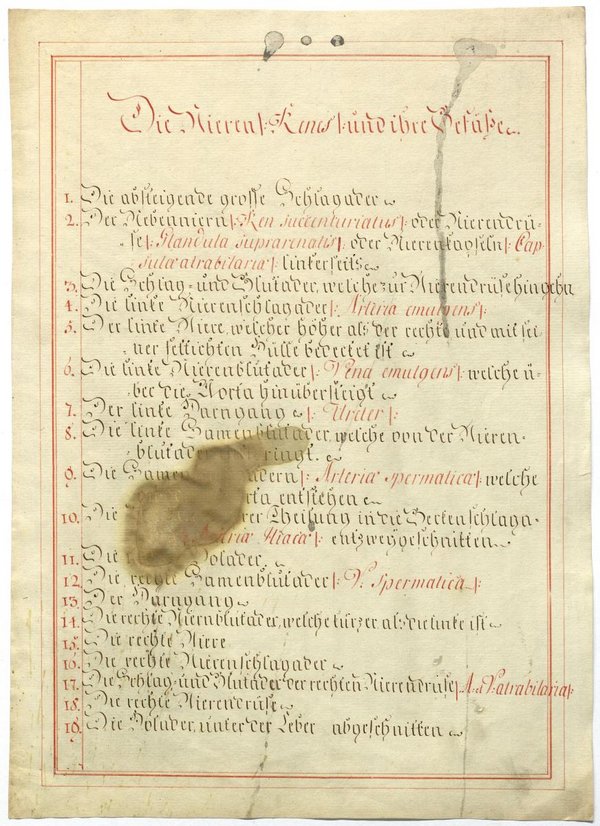 Die Nieren |: Renes :| und ihre Gefäße.
1. Die absteigende grosse Schlagader
2. Der Nebenniern |: Ren succenturiatus :| oder Nierendrü-
se |: Glandula suprarenalis :| oder Nierenkapseln |: Cap
sulæ atrabilariæ :| linkerseits
3. Die Schlag- und Blutader, welche zur Nierendrüse hingehn
4. Die linke Nierenschlagader |: Arteria emulgens :|
5. Der linke Niere, welcher höher als der rechte und mit sei-
ner fettichten Hülle bedecket ist
6. Die linke Nierenblutader |: Vena emulgens :| welche ü-
ber die Aorta hinübersteigt
7. Der linke Harngang |: Ureter :|
8. Die linke Samenblutader, welche von der Nieren-
blutader
9. Die Samen adern |: Arteriæ spermaticæ :| welche
entstehen
10. Die Theilung in die Beckenschlaga-
Iliaca :| entzweygeschnitten
11. Die Holader
12. Die rechte Samenblutader |: V. spermatica :|
13. Der Harngang
14. Die rechte Niernblutader, welche kürzer als die linke ist
15. Die rechte Niere
16. Die rechte Nierenschlagader
17. Die Schlag- und Blutader der rechten Nierendrüse |: A. et V. atrabilaria :|
18. Die rechte Nierendrüse
19. Die Holader, unter der Leber abgeschnitten